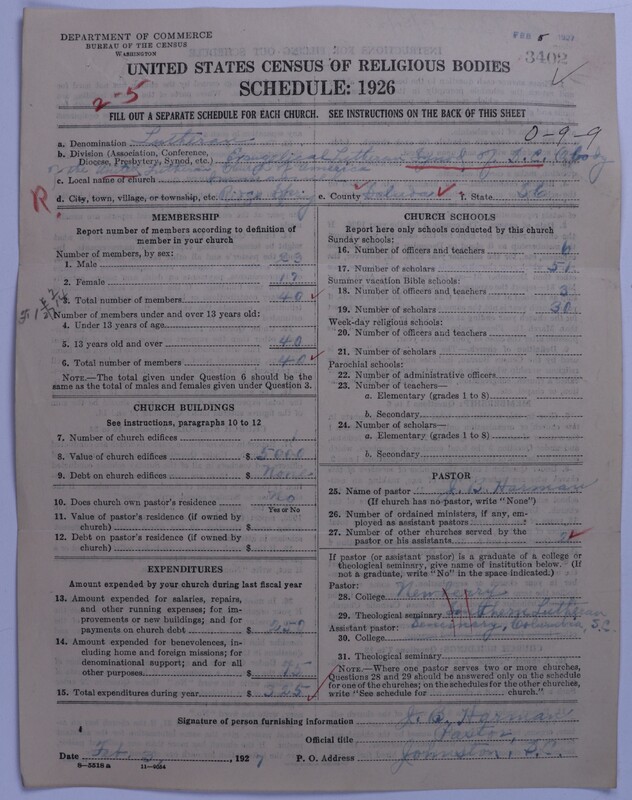 DEPARTMENT OF COMMERCE
BUREAU OF THE CENSUS
WASHINGTON
FEB 5 1927
3402
UNITED STATES CENSUS OF RELIGIOUS BODIES
SCHEDULE: 1926
2-5
FILL OUT A SEPARATE SCHEDULE FOR EACH CHURCH. SEE INSTRUCTIONS ON THE BACK OF THIS SHEET
0-9-9
a. Denomination Lutheran
b. Division (Association, Conference, Diocese, Presbytery, Synod, etc.) Evangelical Lutheran Synod of S.C. a body
of the United Lutheran Church of America
c. Local name of church
R
d. City, town, village, or township, etc. Ridge Spring e. County Saluda f. State S.C.
MEMBERSHIP
Report number of members according to definition of
member in your church
Number of members, by sex:
1. Male 23
2. Female 17
3. Total number of members 40
Number of members under and over 13 years old:
4. Under 13 years of age
5. 13 years old and over 40
6. Total number of members 40
NOTE.—The total given under Question 6 should be
same as the total of males and females given under Question 3.
CHURCH BUILDINGS
See instructions, paragraphs 10 to 12
7. Number of church edifices 1
8. Value of church edifices $ 5000
9. Debt on church edifices $ None
10. Does church own pastor's residence No
Yes or No
11. Value of pastor's residence (if owned by
church) $
12. Debt on pastor's residence (if owned by
church) $
EXPENDITURES
Amount expended by your church during last fiscal year
13. Amount expended for salaries, repairs,
and other running expenses; for im-
provements or new buildings; and for
payments on church debt $ 250
14. Amount expended for benevolences, in-
cluding home and foreign missions; for
denominational support; and for all
other purposes $ 75
15. Total expenditures during year $ 325
CHURCH SCHOOLS
Report here only schools conducted by this church
Sunday schools:
16. Number of officers and teachers 6
17. Number of scholars 51
Summer vacation Bible schools:
18. Number of officers and teachers 3
19. Number of scholars 30
Week-day religious schools:
20. Number of officers and teachers
21. Number of scholars
Parochial schools:
22. Number of administrative officers
23. Number of teachers—
a. Elementary (grades 1 to 8)
b. Secondary
24. Number of scholars—
a. Elementary (grades 1 to 8)
b. Secondary
PASTOR
25. Name of pastor J. B. Harman
(If church has no pastor, write "None")
26. Number of ordained ministers, if any, em-
ployed as assistant pastors
27. Number of other churches served by the
pastor or his assistants 2
If pastor (or assistant pastor) is a graduate of a college or
theological seminary, give name of institution below. (If
not a graduate, write "No" in the space indicated.)
Pastor:
28. College Newberry
29. Theological seminary Southern Lutheran
Assistant pastor: Seminary, Columbia, S.C.
30. College
31. Theological seminary
NOTE.—Where one pastor serves two or more churches,
Questions 28 and 29 should be answered only on the schedule
for one of the churches; on the schedules for the other churches,
write "See schedule for church."
Signature of person furnishing information J. B. Harman
Official title Pastor,
Date Feb. 3, 1927 P. O. Address Johnston, S.C.
8-5518 a 11-9554